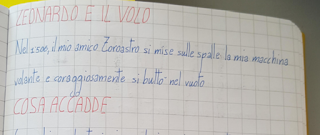 LEONARDO E IL VOLO
Nel 1500, il mio amico Zoroastro si mise sulle spalle la mia macchina
volante e coraggiosamente si buttò nel vuoto.
COSA ACCADDE